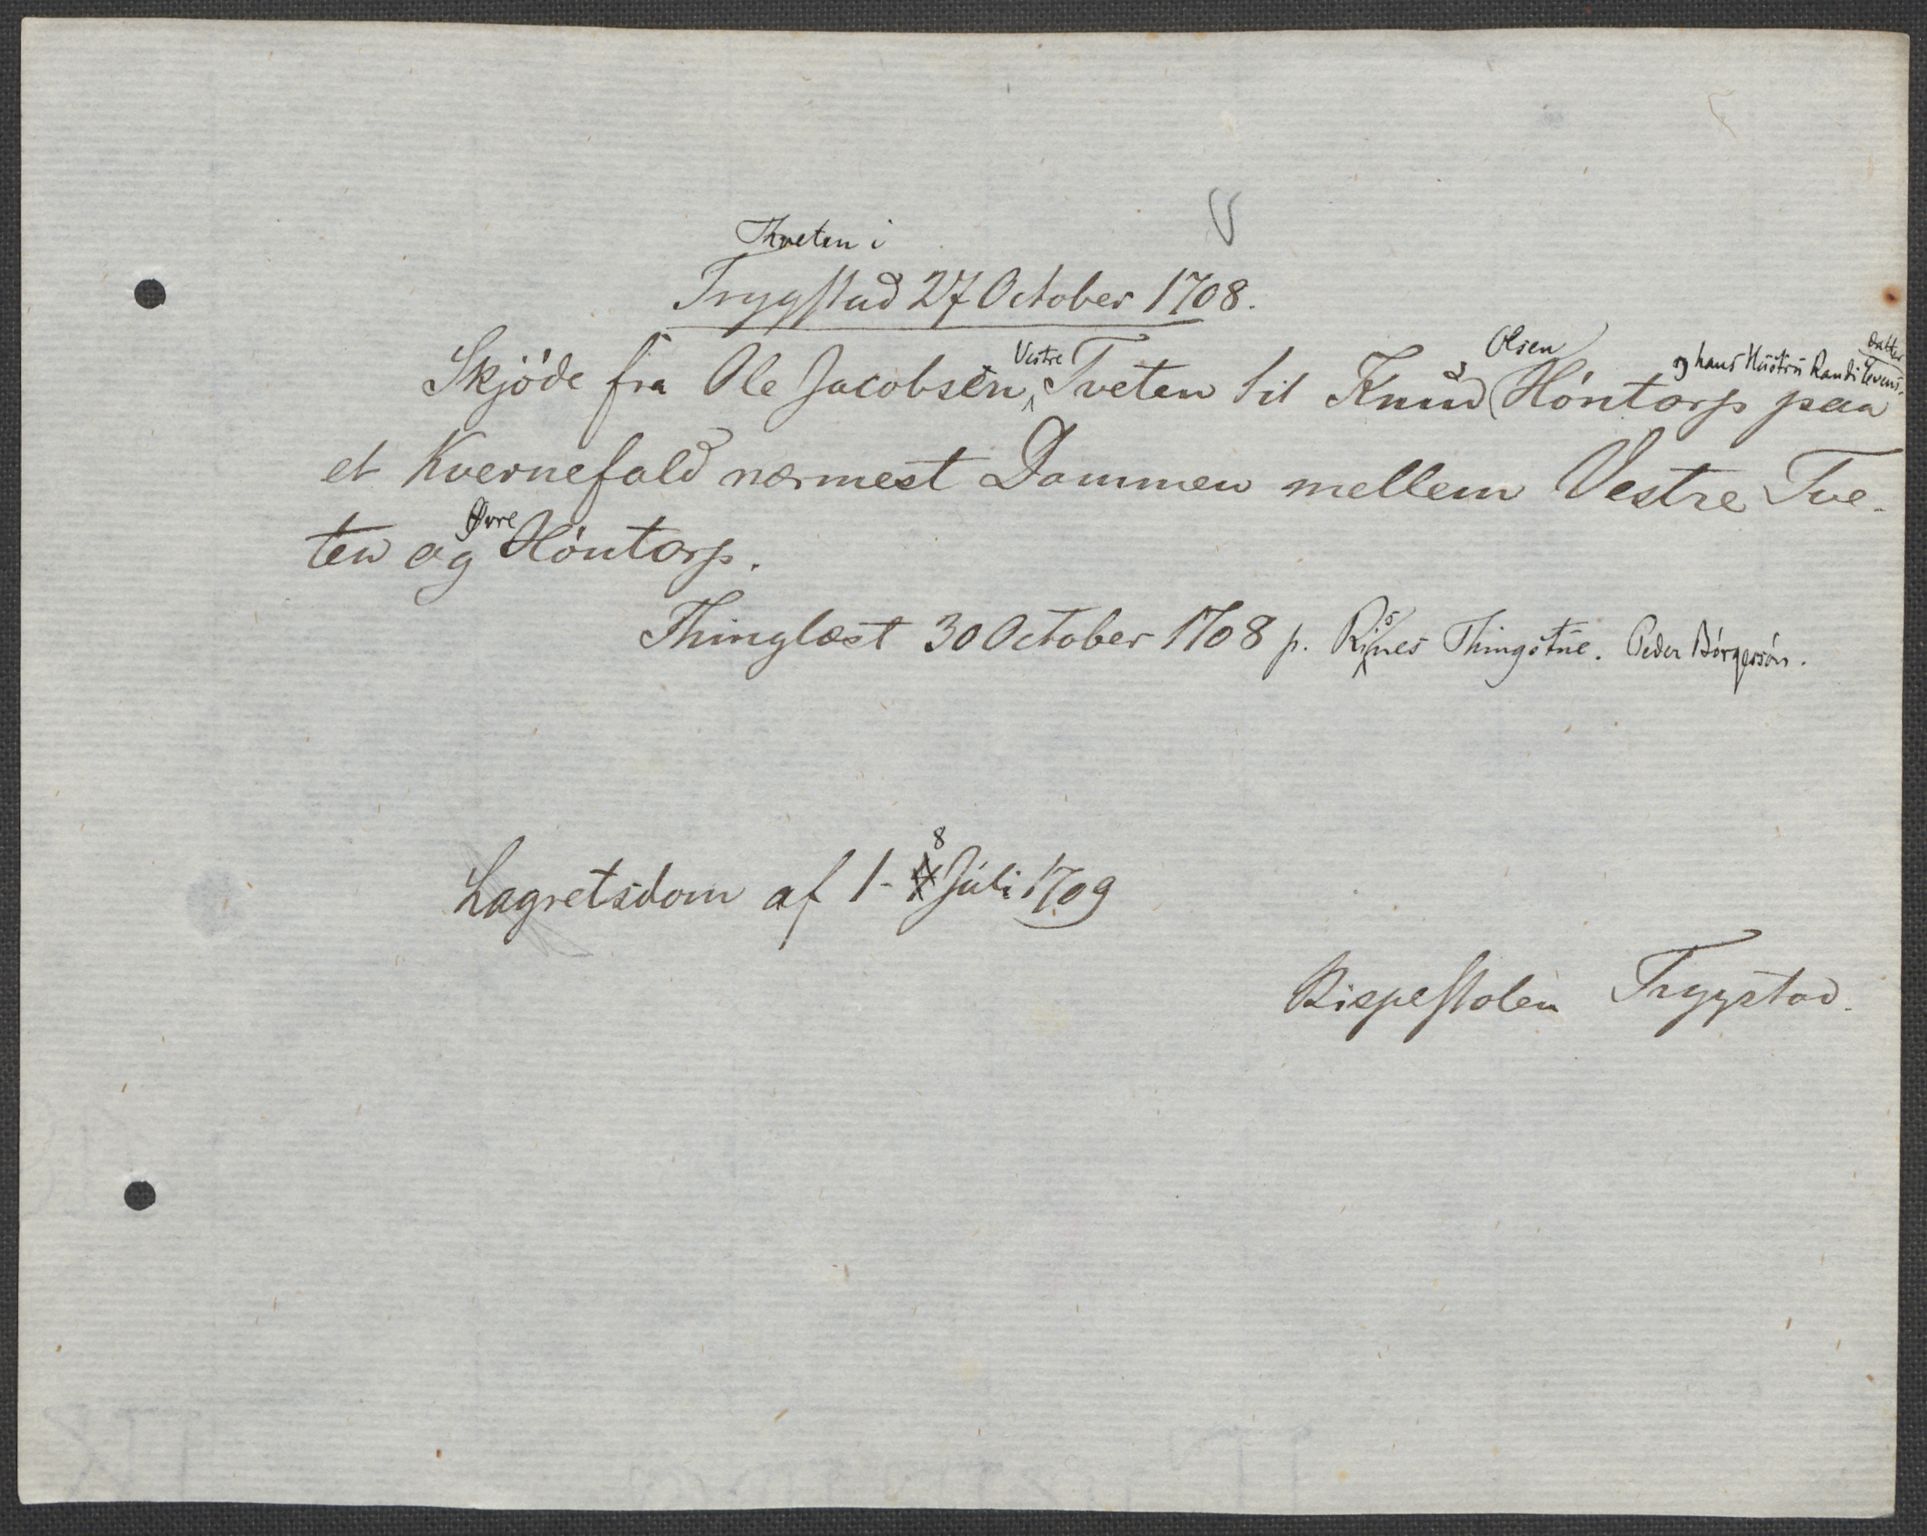 Thveten i
Trygstad 27 October 1708.
Skjóde fra Ole Jacobsen, Vestre Tveten til Knud Olsen Hóntorp og hans Hústrú Randi Tevens-datter paa
et Kvernefald nærmest Dammen mellem Vestre Tve-
ten og Øvre Hóntorp.
Thinglæst 30 October 1708 p. Risnes Thingstúe. Peder Bórgersón.
Lagretsdom af 1-8 Júli 1709
Bispestolen Trygstad.